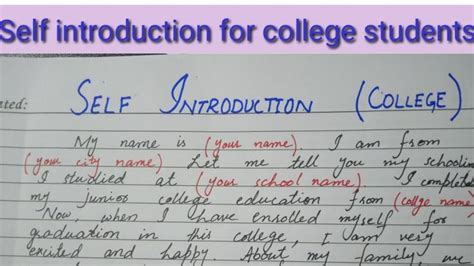 Self introduction for college students
ated:
SELF INTRODUCTION (COLLEGE)
My name is (your name). I am from
(your city name). Let me tell you my schoolin
I studied at (your school name). I complete
my junior college education from (collge name
Now, when I have enrolled myself for
graduation in this college, I am very
excited and happy. About my family, we